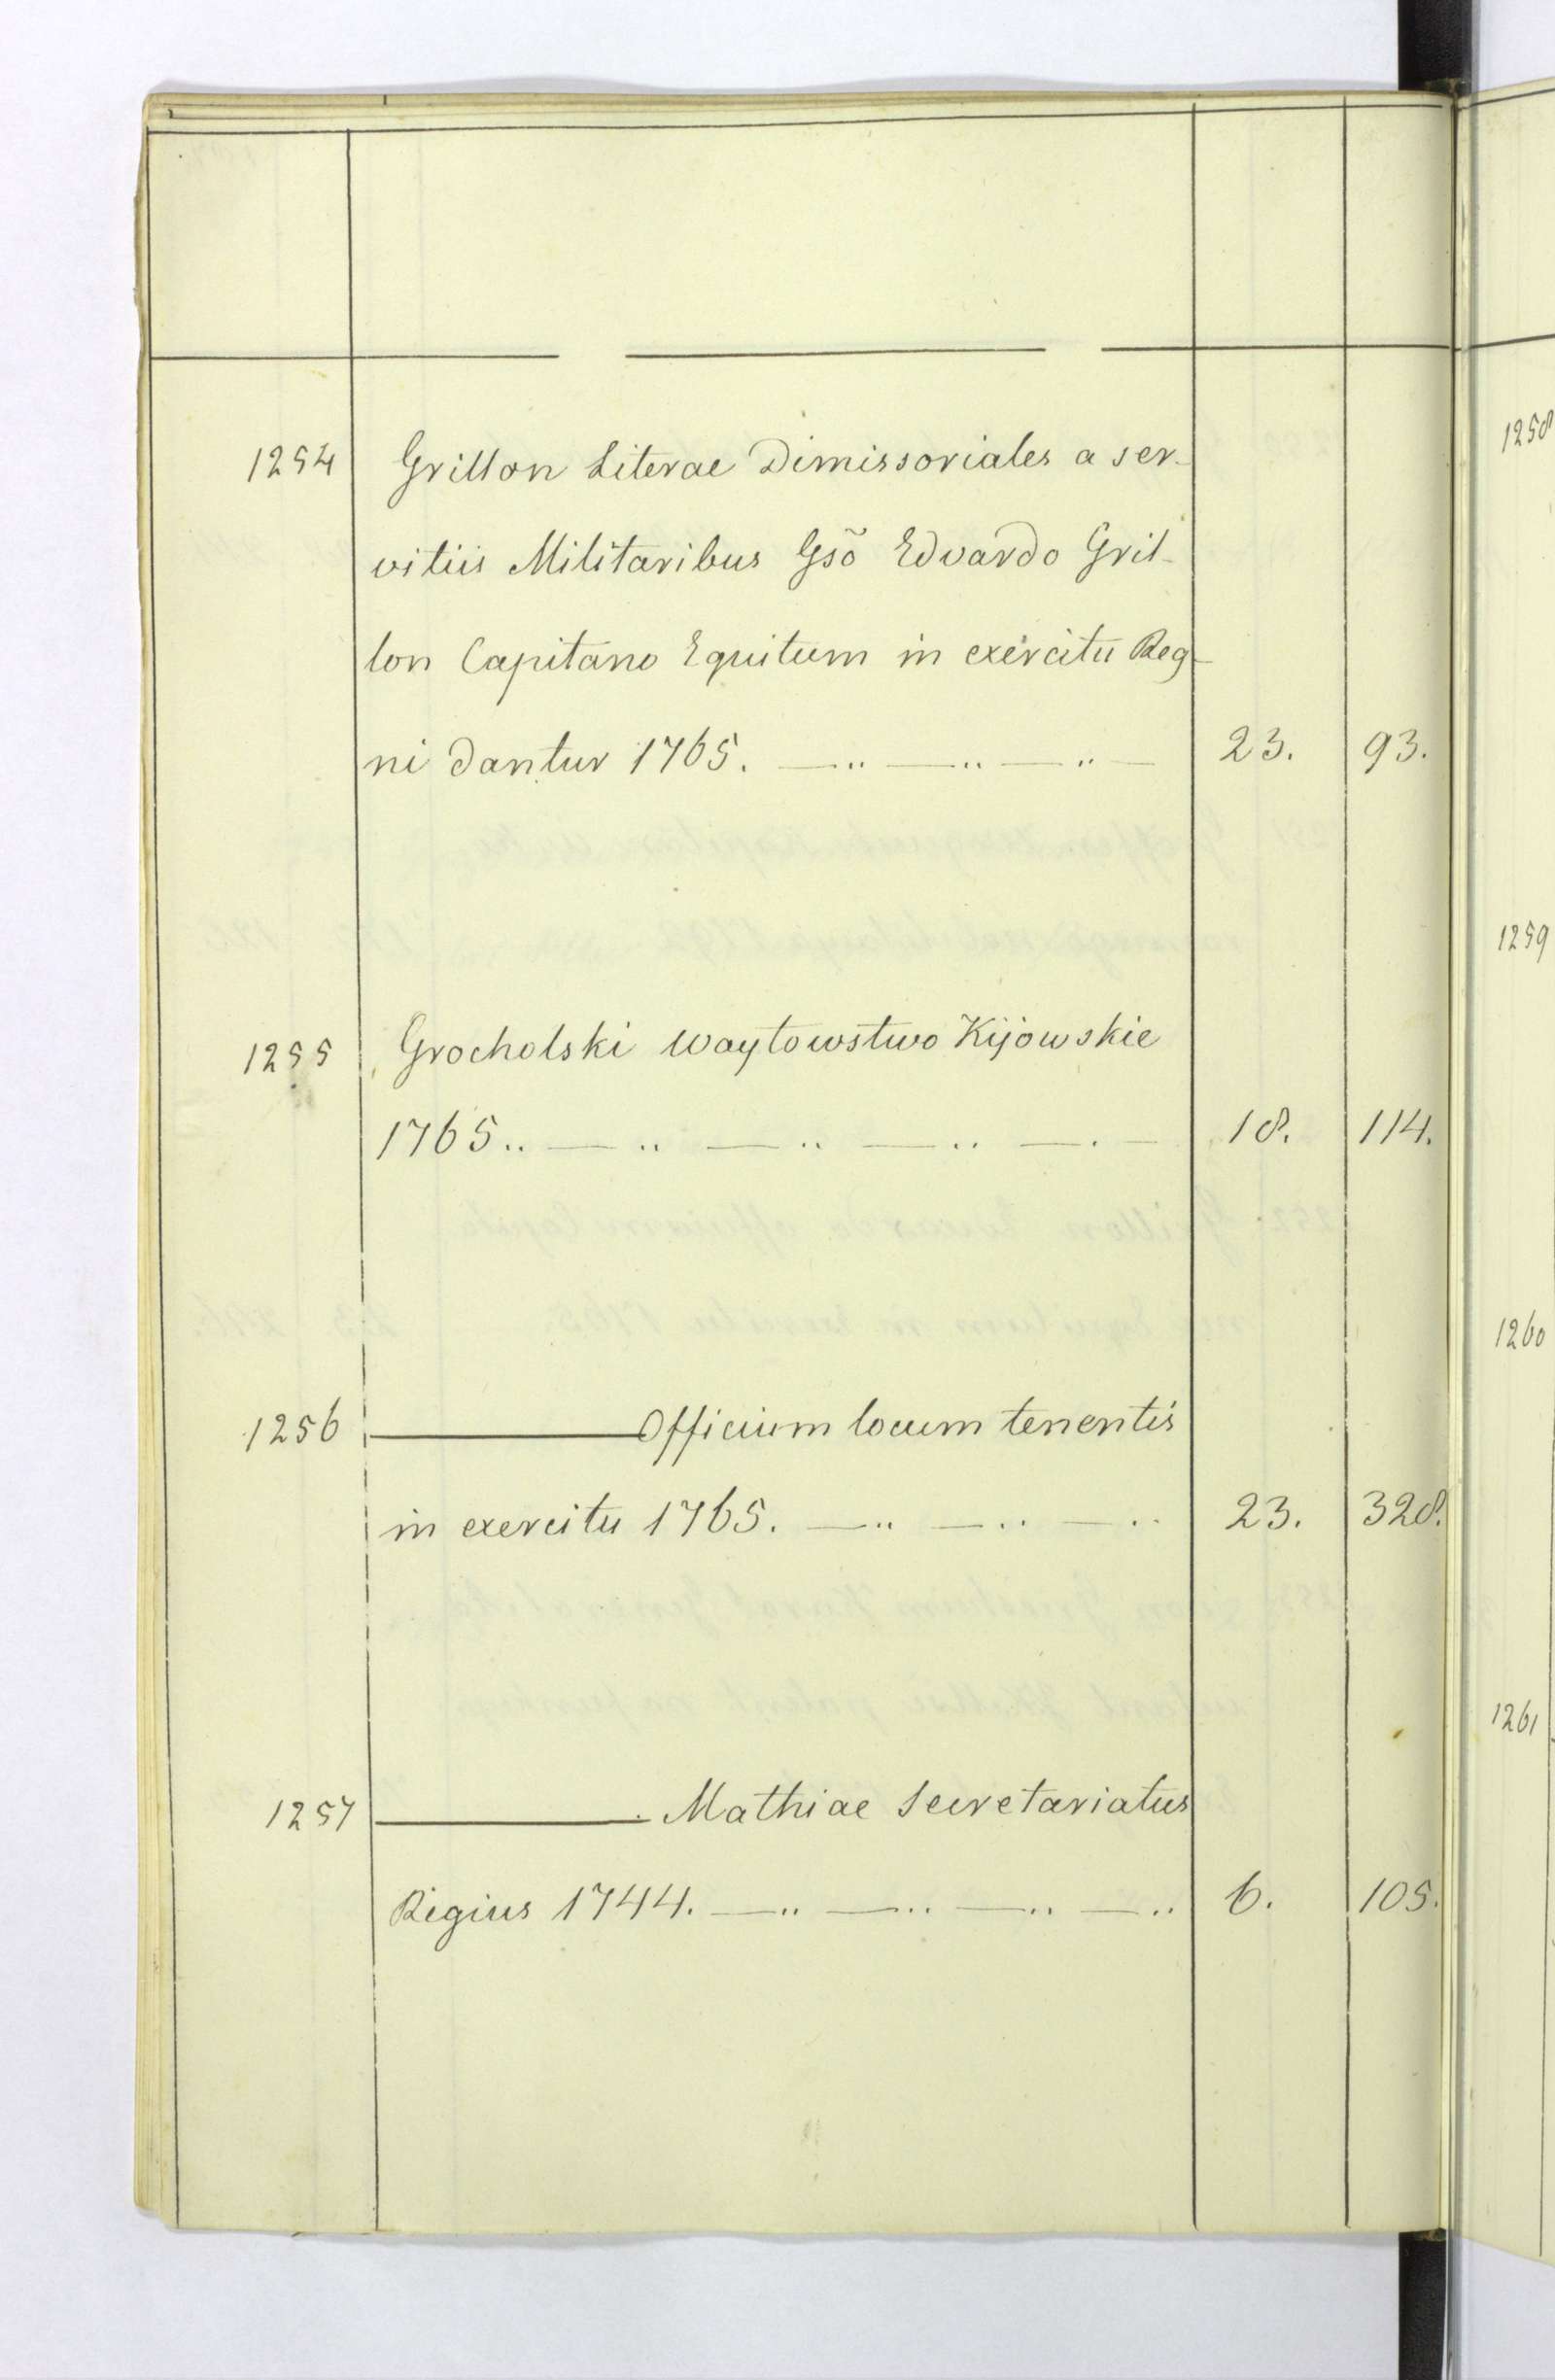 1254 Grillon Literae Dimissoriales a ser-
vitiis Militaribus Gsõ Edvardo Gril-
lon Capitano Equitum in exercitu Reg-
ni dantur 1765. —.. —.. —.. — 23. 93.
1255 Grocholski Woytowstwo Kijowskie
1765.. — .. — .. — .. — . — 18. 114.
1256 ——— Officium locum tenentis
in exercitu 1765. —.. —.. —.. 23. 328.
1257 ———. Mathiae Secretariatus
Regius 1744. —.. —.. —.. —.. 6. 105.
1258
1259
1260
1261